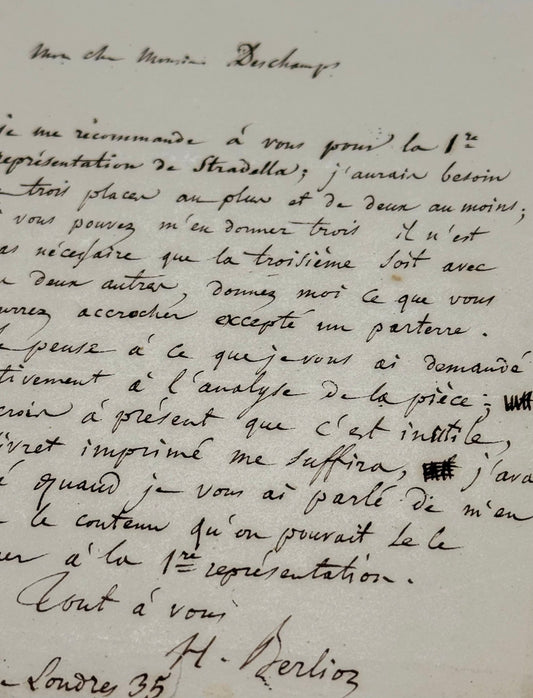 Mon cher Monsieur Deschamps
je me recommande à vous pour la 1re
représentation de Stradella; j'aurais besoin
trois places au plus et de deux au moins;
vous pouvez m'en donner trois il n'est
as nécessaire que la troisième soit avec
deux autres, donnez moi ce que vous
urrez accrocher excepté un parterre.
pense à ce que je vous ai demandé
tivement à l'analyse de la pièce;
crois à présent que c'est inutile,
ivret imprimé me suffira, j'ava
é quand je vous ai parlé de m'en
le contenu qu'on pouvait le le
er à la 1re représentation.
Tout à vous
H. Berlioz
Londres 35